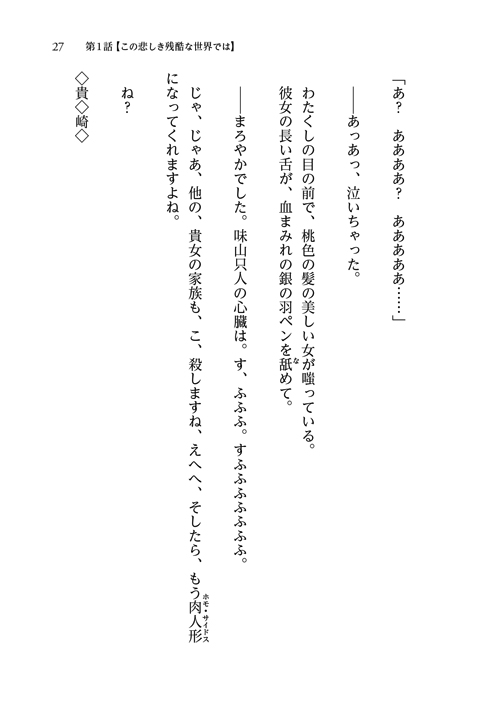 27 第1話【この悲しき残酷な世界では】
「あ？　ああああ？　あああああ……」
――あっあっ、泣いちゃった。
わたくしの目の前で、桃色の髪の美しい女が嗤っている。
彼女の長い舌が、血まみれの銀の羽ペンを舐めて。
な
――まろやかでした。味山只人の心臓は。す、ふふふ。すふふふふふふふ。
じゃ、じゃあ、他の、貴女の家族も、こ、殺しますね、えへへ、そしたら、もう肉人形
ホモ・サイドス
になってくれますよね。
ね？
◇貴◇崎◇